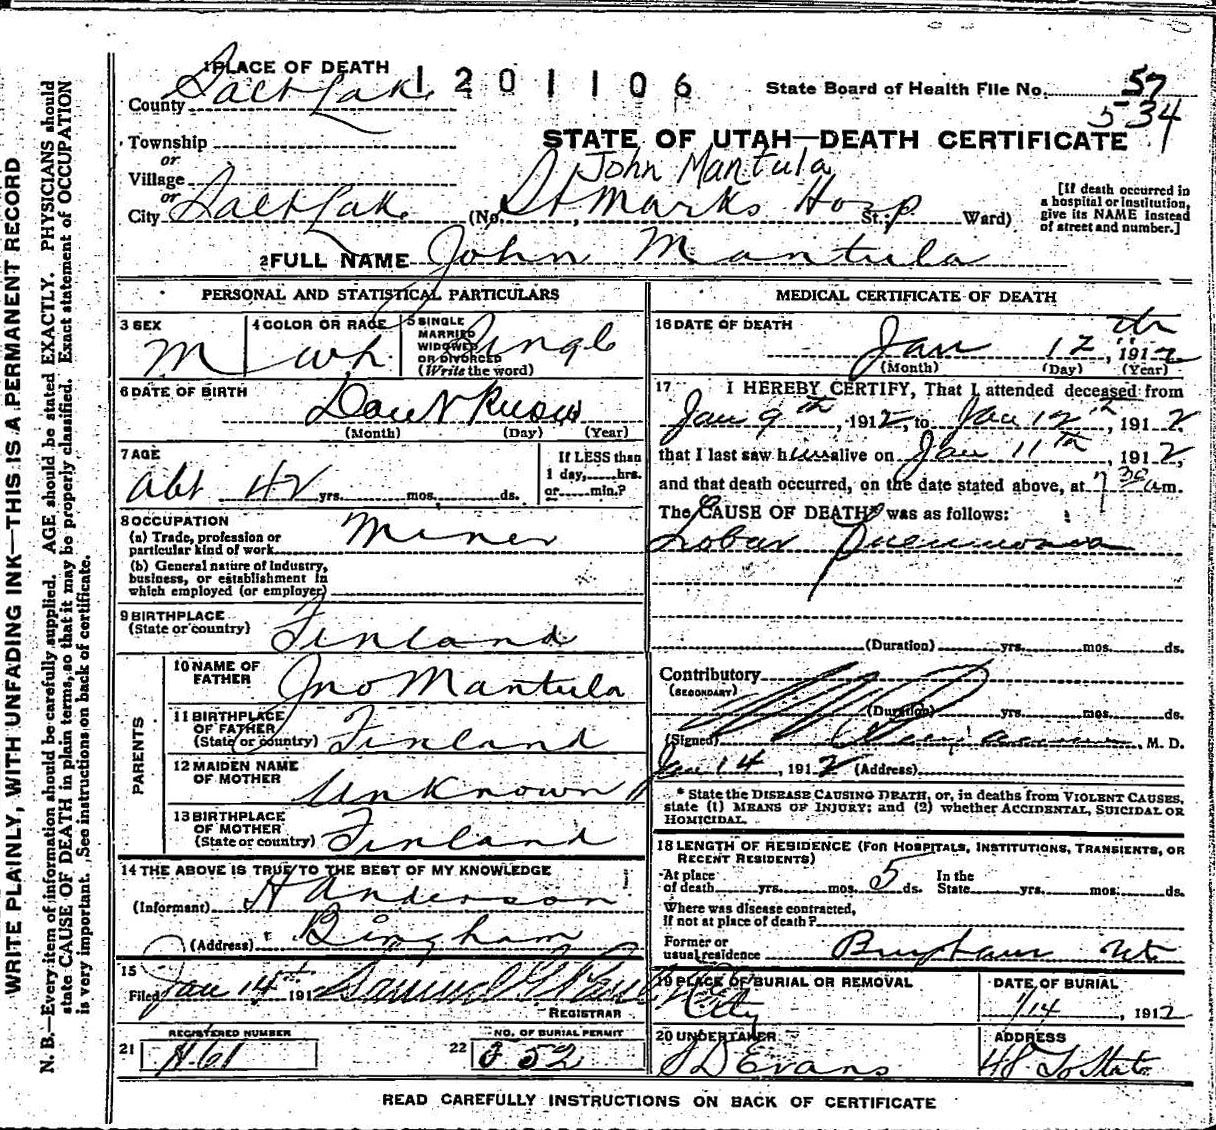 1 PLACE OF DEATH
1201106
State Board of Health File No. 57
534
County Salt Lake
STATE OF UTAH—DEATH CERTIFICATE
Township
or
Village
or
John Mantula
City Salt Lake (No. St Marks Hosp St.; Ward)
[If death occurred in
a hospital or institution,
give its NAME instead
of street and number.]
2 FULL NAME John Mantula
PERSONAL AND STATISTICAL PARTICULARS
3 SEX M
4 COLOR OR RACE wh.
5 SINGLE
MARRIED
WIDOWED
OR DIVORCED
(Write the word) Single
6 DATE OF BIRTH Dont Know
(Month) (Day) (Year)
7 AGE abt 42 yrs. mos. ds.
If LESS than
1 day, hrs.
or min.?
8 OCCUPATION
(a) Trade, profession or
particular kind of work Miner
(b) General nature of Industry,
business, or establishment in
which employed (or employer)
9 BIRTHPLACE
(State or country) Finland
PARENTS
10 NAME OF
FATHER Jno Mantula
11 BIRTHPLACE
OF FATHER
(State or country) Finland
12 MAIDEN NAME
OF MOTHER Unknown
13 BIRTHPLACE
OF MOTHER
(State or country) Finland
14 THE ABOVE IS TRUE TO THE BEST OF MY KNOWLEDGE
(Informant) H Anderson
(Address) Bingham
15
Filed Jan 14th 191 Samuel G Paul
REGISTRAR
REGISTERED NUMBER
21 H-61
NO. OF BURIAL PERMIT
22 52
MEDICAL CERTIFICATE OF DEATH
16 DATE OF DEATH
Jan 12th, 1912
(Month) (Day) (Year)
17 I HEREBY CERTIFY, That I attended deceased from
Jan 9th, 1912, to Jan 12th, 1912
that I last saw him alive on Jan 11th, 1912,
and that death occurred, on the date stated above, at 7 30 a.m.
The CAUSE OF DEATH* was as follows:
Lobar Pneumonia
(Duration) yrs. mos. ds.
Contributory
(SECONDARY)
(Duration) yrs. mos. ds.
(Signed) M. D.
Jan 14, 1912 (Address)
* State the DISEASE CAUSING DEATH, or, in deaths from VIOLENT CAUSES,
state (1) MEANS OF INJURY; and (2) whether ACCIDENTAL, SUICIDAL OR
HOMICIDAL.
18 LENGTH OF RESIDENCE (FOR HOSPITALS, INSTITUTIONS, TRANSIENTS, OR
RECENT RESIDENTS)
At place
of death yrs. mos. 5 ds. In the
State yrs. mos. ds.
Where was disease contracted,
if not at place of death?
Former or
usual residence Bingham Ut.
19 PLACE OF BURIAL OR REMOVAL
City
DATE OF BURIAL
1/14, 1912
20 UNDERTAKER
S D Evans
ADDRESS
48 So State
READ CAREFULLY INSTRUCTIONS ON BACK OF CERTIFICATE
WRITE PLAINLY, WITH UNFADING INK—THIS IS A PERMANENT RECORD
N. B.—Every item of information should be carefully supplied. AGE should be stated EXACTLY. PHYSICIANS should
state CAUSE OF DEATH in plain terms, so that it may be properly classified. Exact statement of OCCUPATION
is very important. See instructions on back of certificate.